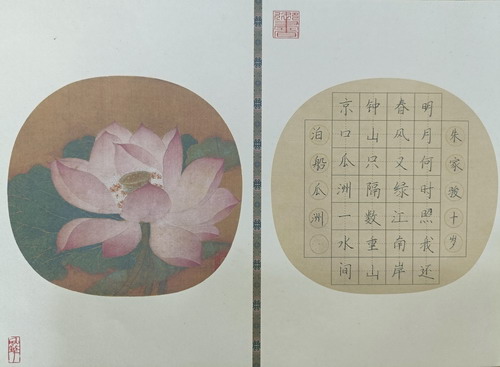 泊船瓜洲
京口瓜洲一水间
钟山只隔数重山
春风又绿江南岸
明月何时照我还
朱家骏十岁